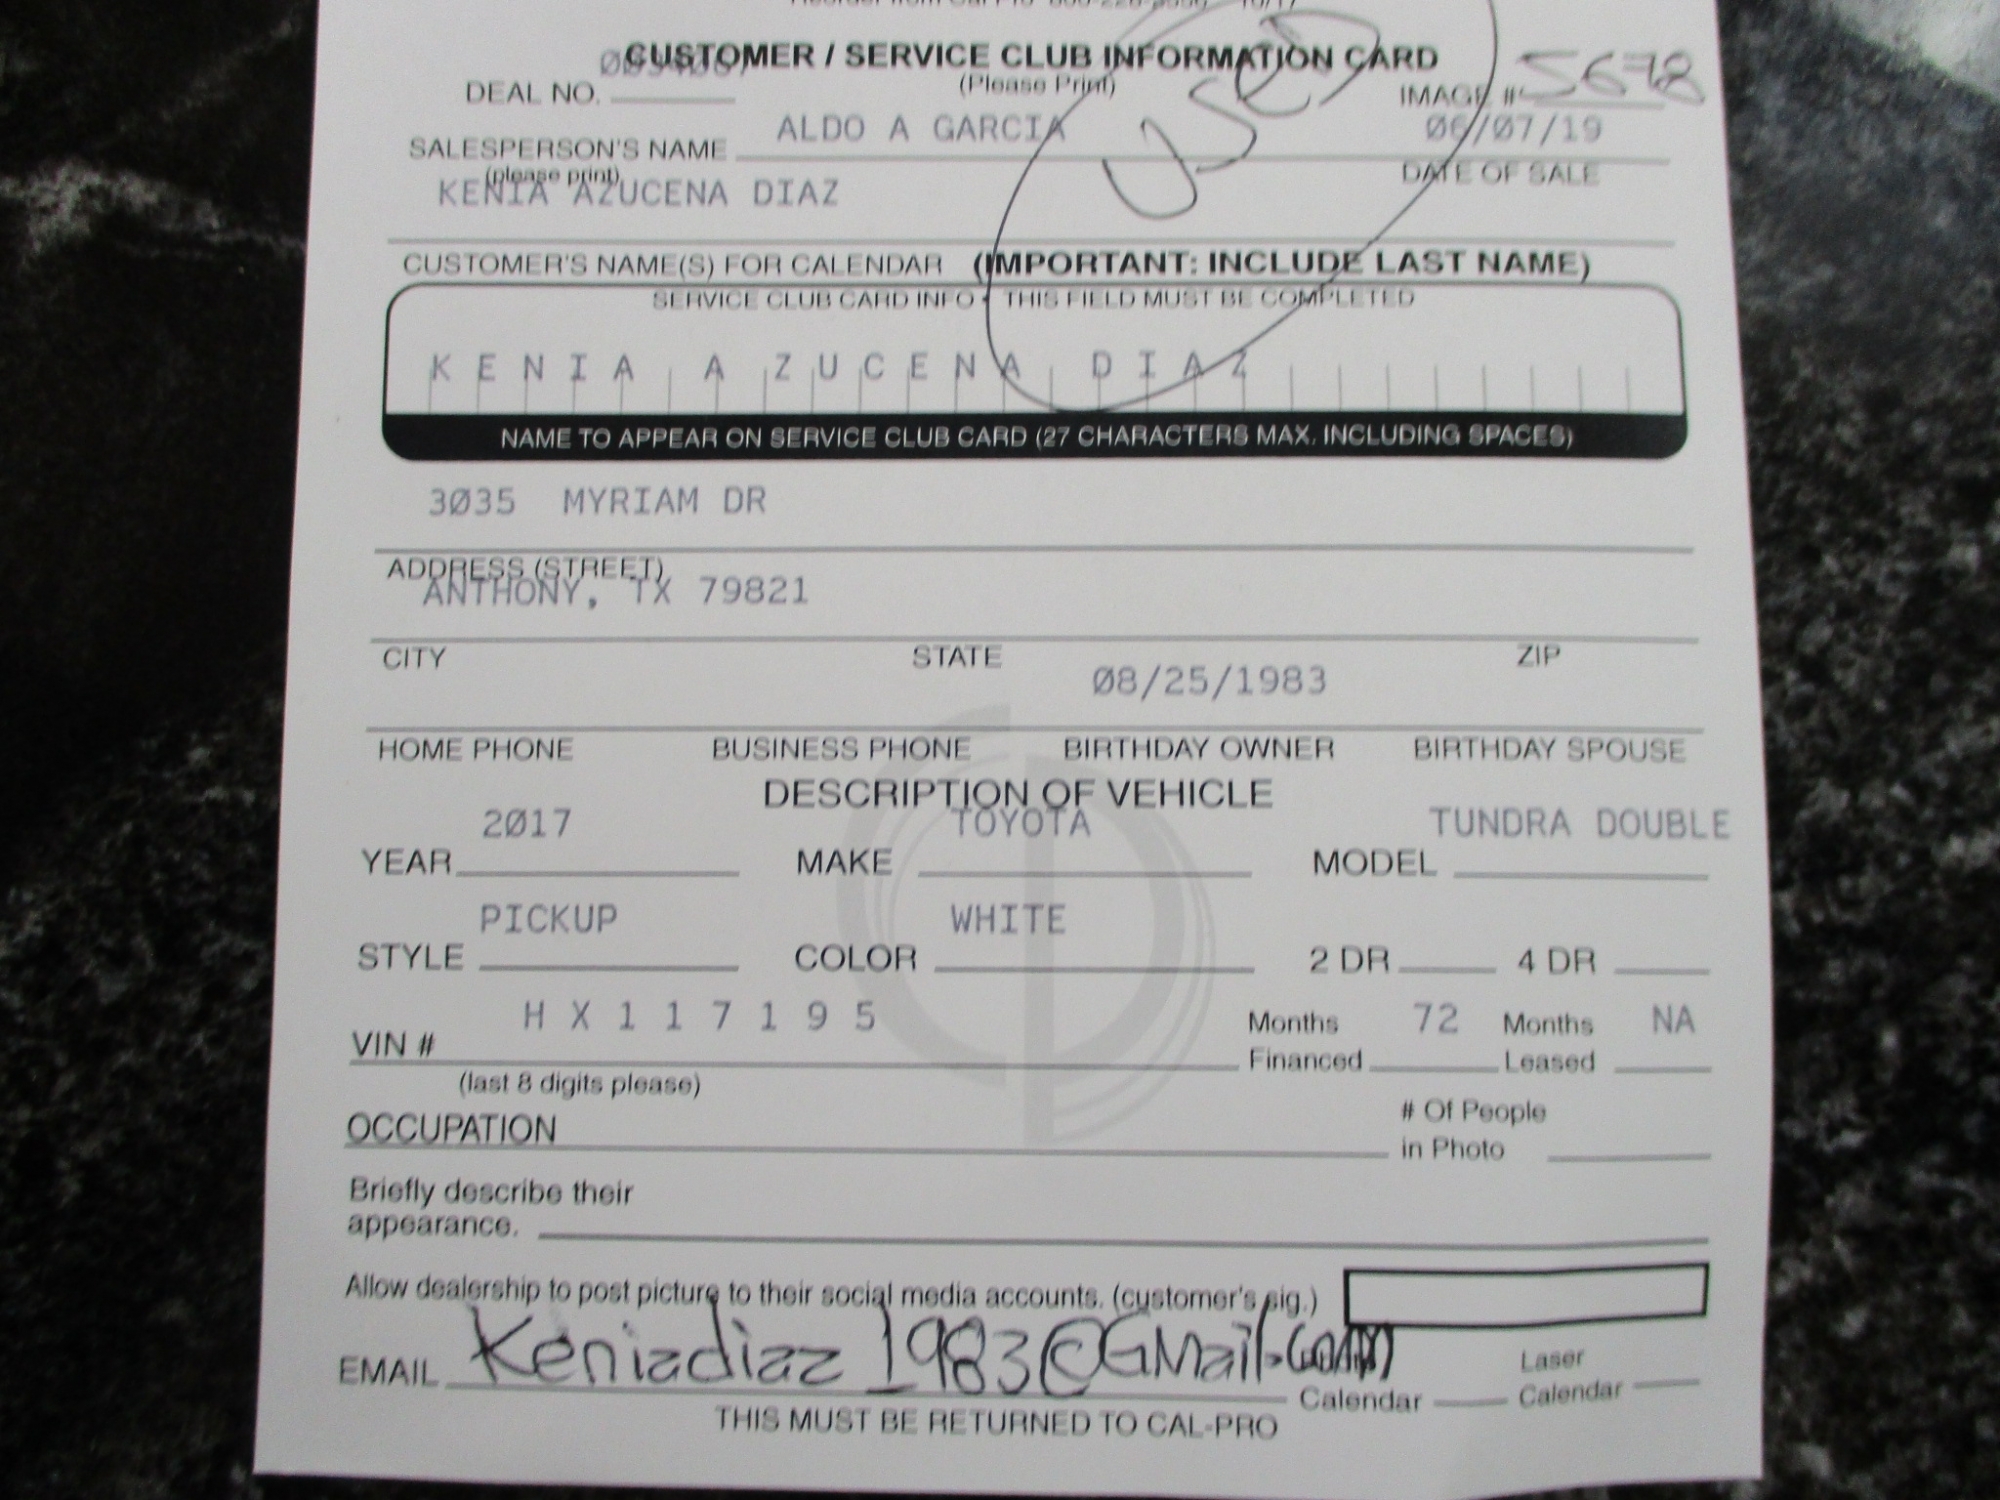 CUSTOMER / SERVICE CLUB INFORMATION CARD
(Please Print)
DEAL NO.
IMAGE # 5678
USED
SALESPERSON'S NAME ALDO A GARCIA 06/07/19
(please print) DATE OF SALE
KENIA AZUCENA DIAZ
CUSTOMER'S NAME(S) FOR CALENDAR (IMPORTANT: INCLUDE LAST NAME)
SERVICE CLUB CARD INFO - THIS FIELD MUST BE COMPLETED
KENIA AZUCENA DIAZ
NAME TO APPEAR ON SERVICE CLUB CARD (27 CHARACTERS MAX. INCLUDING SPACES)
3035 MYRIAM DR
ADDRESS (STREET)
ANTHONY, TX 79821
CITY STATE ZIP
08/25/1983
HOME PHONE BUSINESS PHONE BIRTHDAY OWNER BIRTHDAY SPOUSE
DESCRIPTION OF VEHICLE
2017 TOYOTA TUNDRA DOUBLE
YEAR MAKE MODEL
PICKUP WHITE
STYLE COLOR 2 DR 4 DR
HX117195 Months 72 Months NA
VIN # Financed Leased
(last 8 digits please)
OCCUPATION # Of People
in Photo
Briefly describe their
appearance.
Allow dealership to post picture to their social media accounts. (customer's sig.)
EMAIL Keniadiaz1983@GMail.com Laser
Calendar Calendar
THIS MUST BE RETURNED TO CAL-PRO